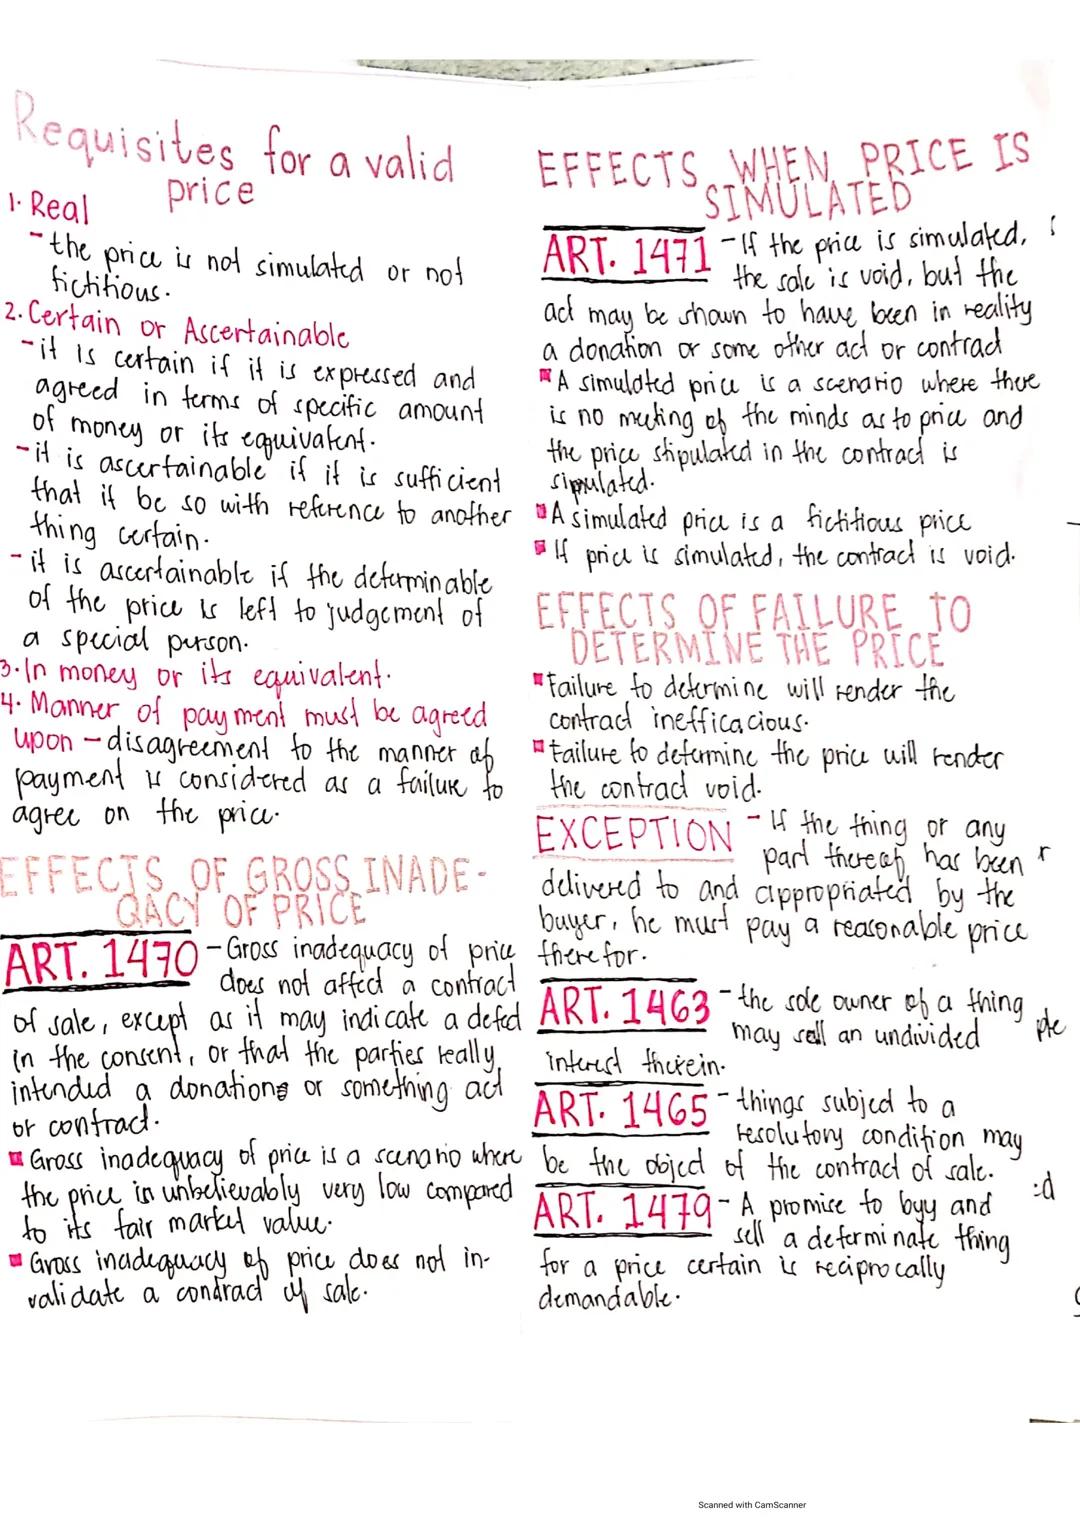 Requisites for a valid
price
1. Real
- the price is not simulated or not
fictitious.
2. Certain or Ascertainable
- it is certain if it is expressed and
agreed in terms of specific amount
of money or its equivalent.
- it is ascertainable if it is sufficient
that it be so with reference to another
thing certain.
- it is ascertainable if the determinable
of the price is left to judgement of
a special person.
3. In money or its equivalent.
4. Manner of payment must be agreed
upon - disagreement to the manner of
payment is considered as a failure to
agree on the price.
EFFECTS OF GROSS INADE-
QACY OF PRICE
ART. 1470 - Gross inadequacy of price
does not affect a contract
of sale, except as it may indicate a defect
in the consent, or that the parties really
intended a donations or something act
or contract.
Gross inadequacy of price is a scenario where
the price in unbelievably very low compared
to its fair market value.
Gross inadequacy of price does not in-
validate a contract of sale.
EFFECTS WHEN PRICE IS
SIMULATED
ART. 1471 - If the price is simulated,
the sale is void, but the
act may be shown to have been in reality
a donation or some other act or contract
A simulated price is a scenario where there
is no meeting of the minds as to price and
the price stipulated in the contract is
simulated.
A simulated price is a fictitious price
If price is simulated, the contract is void.
EFFECTS OF FAILURE TO
DETERMINE THE PRICE
Failure to determine will render the
contract inefficacious.
Failure to determine the price will render
the contract void.
EXCEPTION - If the thing or any
part thereof, has been
delivered to and appropriated by the
buyer, he must pay a reasonable price
there for.
ART. 1463 - the sole owner of a thing
may sell an undivided
interest therein.
ART. 1465 - things subject to a
resolutory condition may
be the object of the contract of sale.
ART. 1479 - A promise to buyy and
sell a determinate thing
for a price certain is reciprocally
demandable.
Scanned with CamScanner